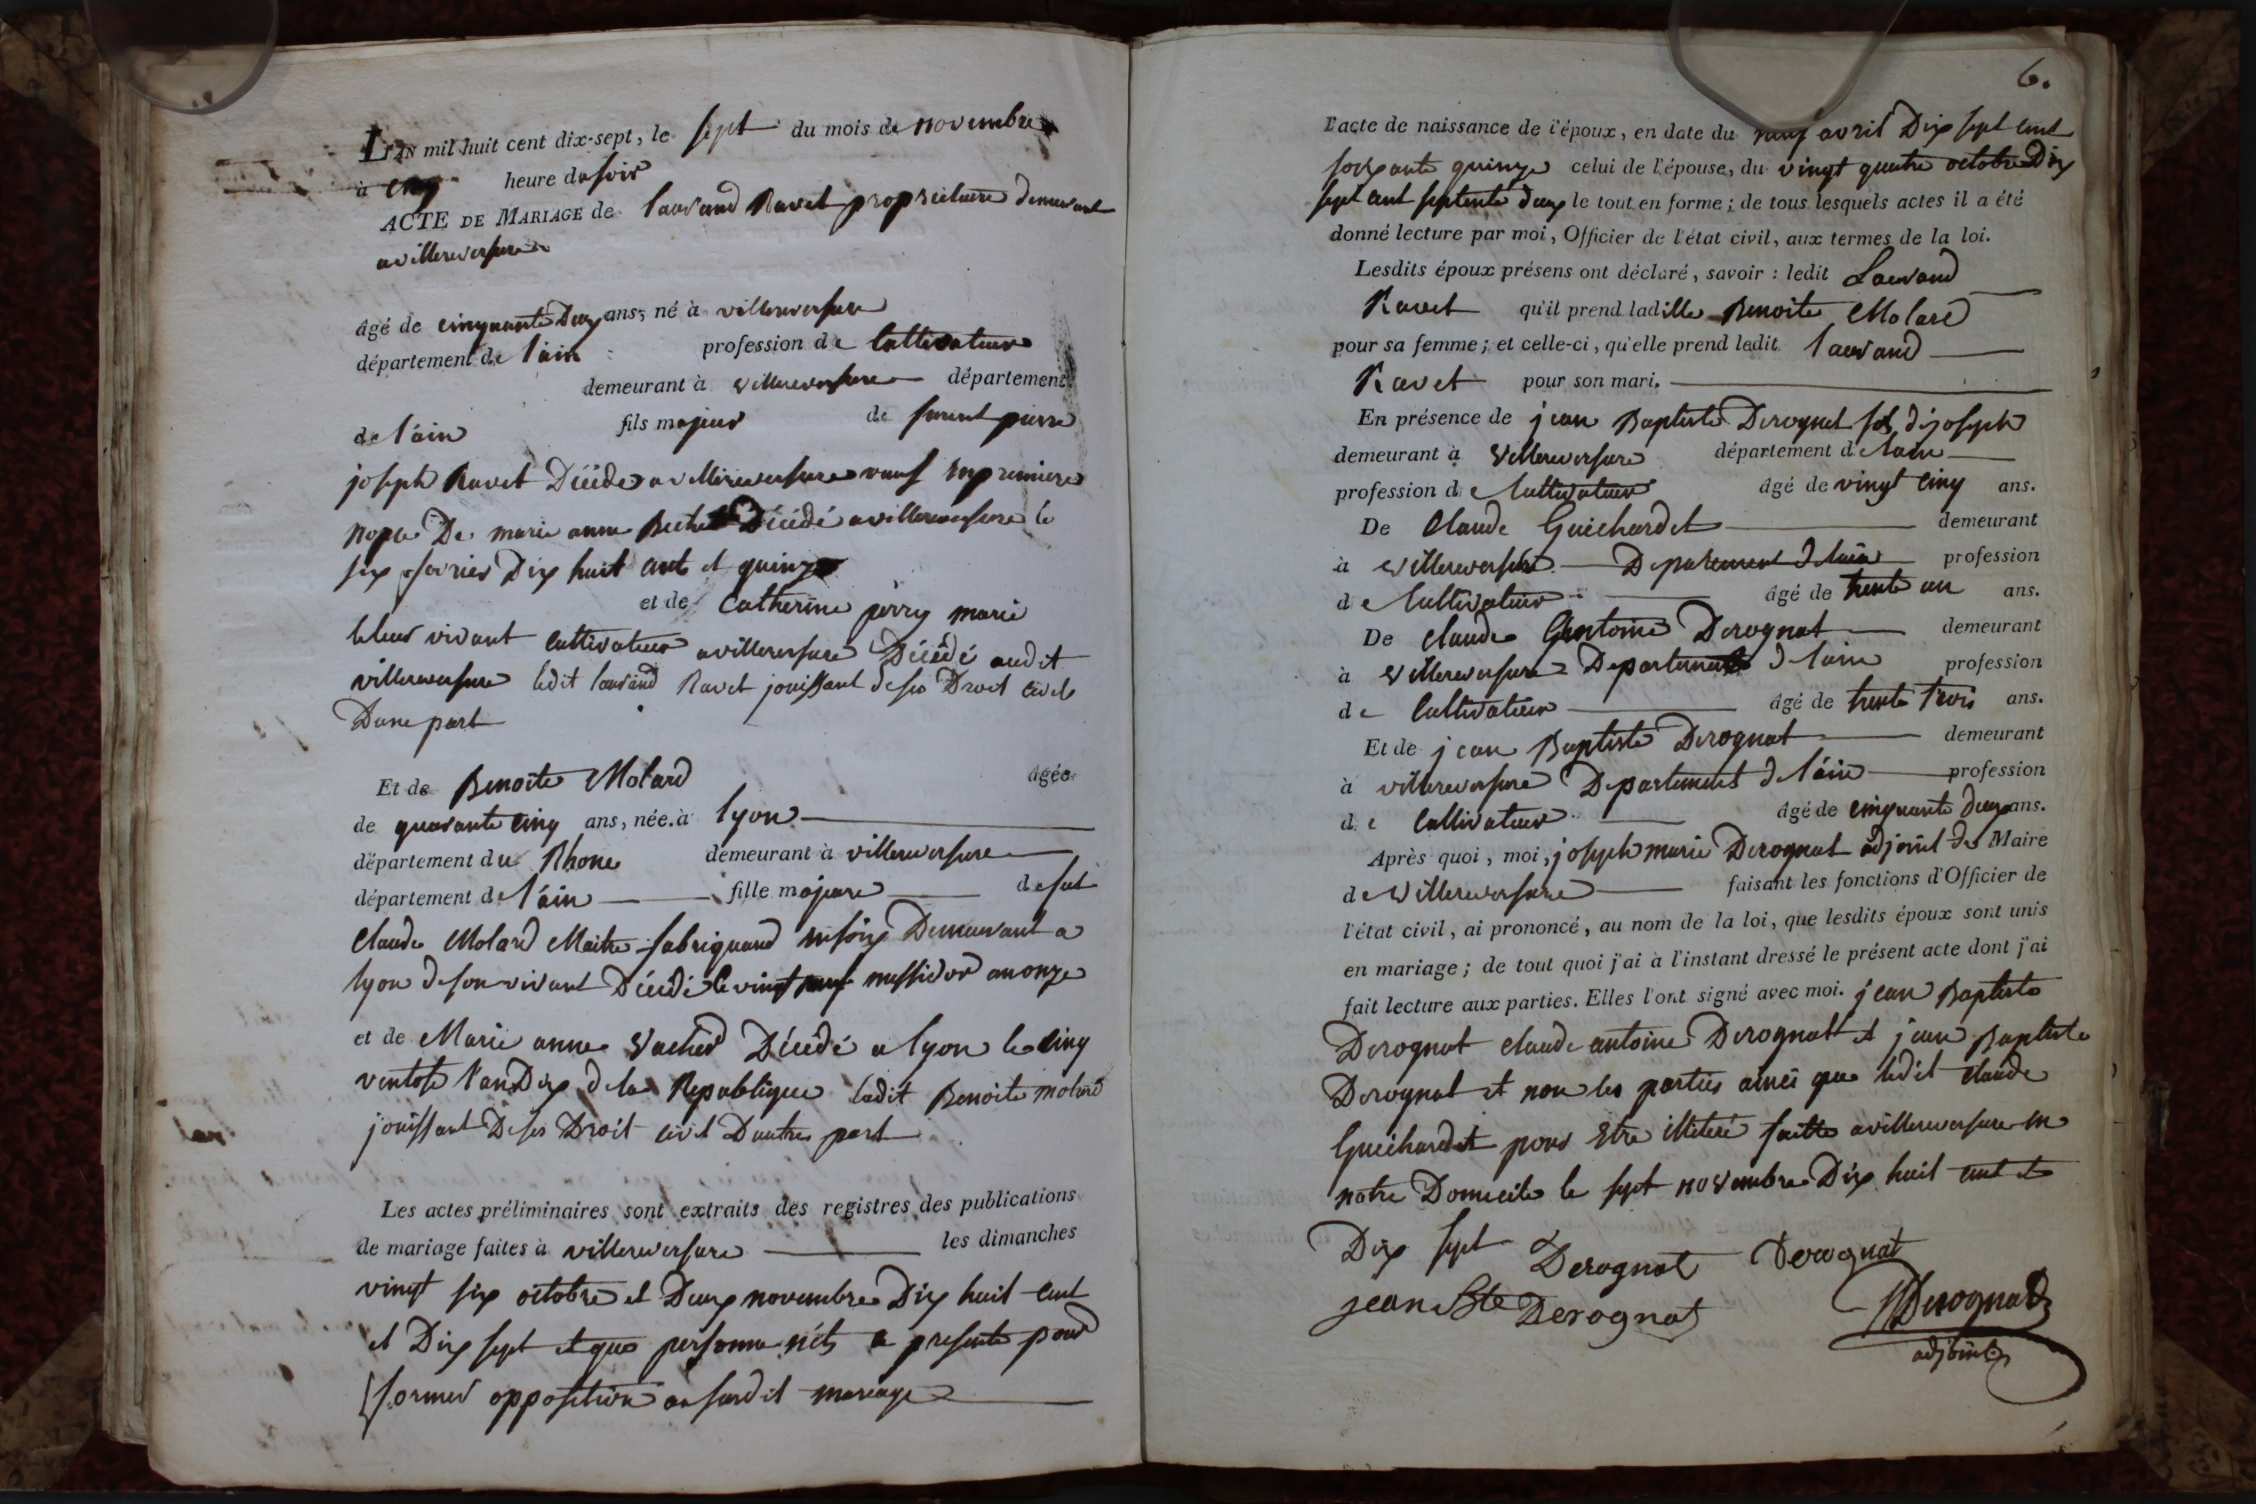 L'AN mil huit cent dix-sept, le sept du mois de novembre
à cinq heure du soir
ACTE DE MARIAGE de laurand Ravet propriétaire demeurant
a villereversure
âgé de cinquante Deux ans, né à villereversure
département de l'ain profession de Cultivateur
demeurant à villereversure département
de l'ain fils majeur de furent pierre
joseph Ravet Décédé a villereversure veuf en premiere
nopce De marie anne Décédé a villereversure le
six fevrier Dix huit cent et quinze
et de Catherine perry marié
vivant cultivateur a villereversure Décédé audit
villereversure ledit laurand Ravet jouissant de ses Droit civils
Dune part
Et de Benoite Molard âgée
de quarante cinq ans, née à lyon
département du Rhone demeurant à villereversure
département de l'ain fille majeure de fut
Claude Molard Maitre fabriquand Demeurant a
lyon de son vivant Décédé le vingt neuf messidor an onze
et de Marie anne Vacher Décédé a lyon le cinq
ventose l'an Dix de la Republique ladit Benoite molard
jouissant De ses Droit civil Dautre part
Les actes préliminaires sont extraits des registres des publications
de mariage faites à villereversure les dimanches
vingt six octobre et Deux novembre Dix huit cent
et Dix sept et que personne n'éts a presenté pour
former opposition audit mariage
6.
l'acte de naissance de l'époux, en date du neuf avril Dix sept cent
soixante quinze celui de l'épouse, du vingt quatre octobre Dix
sept cent septente deux le tout en forme ; de tous lesquels actes il a été
donné lecture par moi, Officier de l'état civil, aux termes de la loi.
Lesdits époux présens ont déclaré, savoir : ledit Laurand
Ravet qu'il prend ladille Benoite Molard
pour sa femme ; et celle-ci, qu'elle prend ledit laurand
Ravet pour son mari.
En présence de jean Baptiste Derognat fils de joseph
demeurant à Villereversure département de lain
profession de Cultivateur âgé de vingt cinq ans.
De Claude Guichardet demeurant
à villereversure Departement de lain profession
de Cultivateur âgé de trente un ans.
De claude antoine Derognat demeurant
à villereversure Departement de lain profession
de Cultivateur âgé de trente trois ans.
Et de jean Baptiste Derognat demeurant
à villereversure Departement de l'ain profession
de Cultivateur âgé de cinquante deux ans.
Après quoi, moi, joseph marie Derognat adjoint du Maire
de villereversure faisant les fonctions d'Officier de
l'état civil, ai prononcé, au nom de la loi, que lesdits époux sont unis
en mariage ; de tout quoi j'ai à l'instant dressé le présent acte dont j'ai
fait lecture aux parties. Elles l'ont signé avec moi. jean Baptiste
Derognat claude antoine Derognat et jean Baptiste
Derognat et non les parties ainci que ledit claude
Guichardet pour Etre illiteré faitte a villereversure en
notre Domicile le sept novembre Dix huit cent et
Dix sept Derognat Derognat
jean Bte Derognat Derognat
adjoint